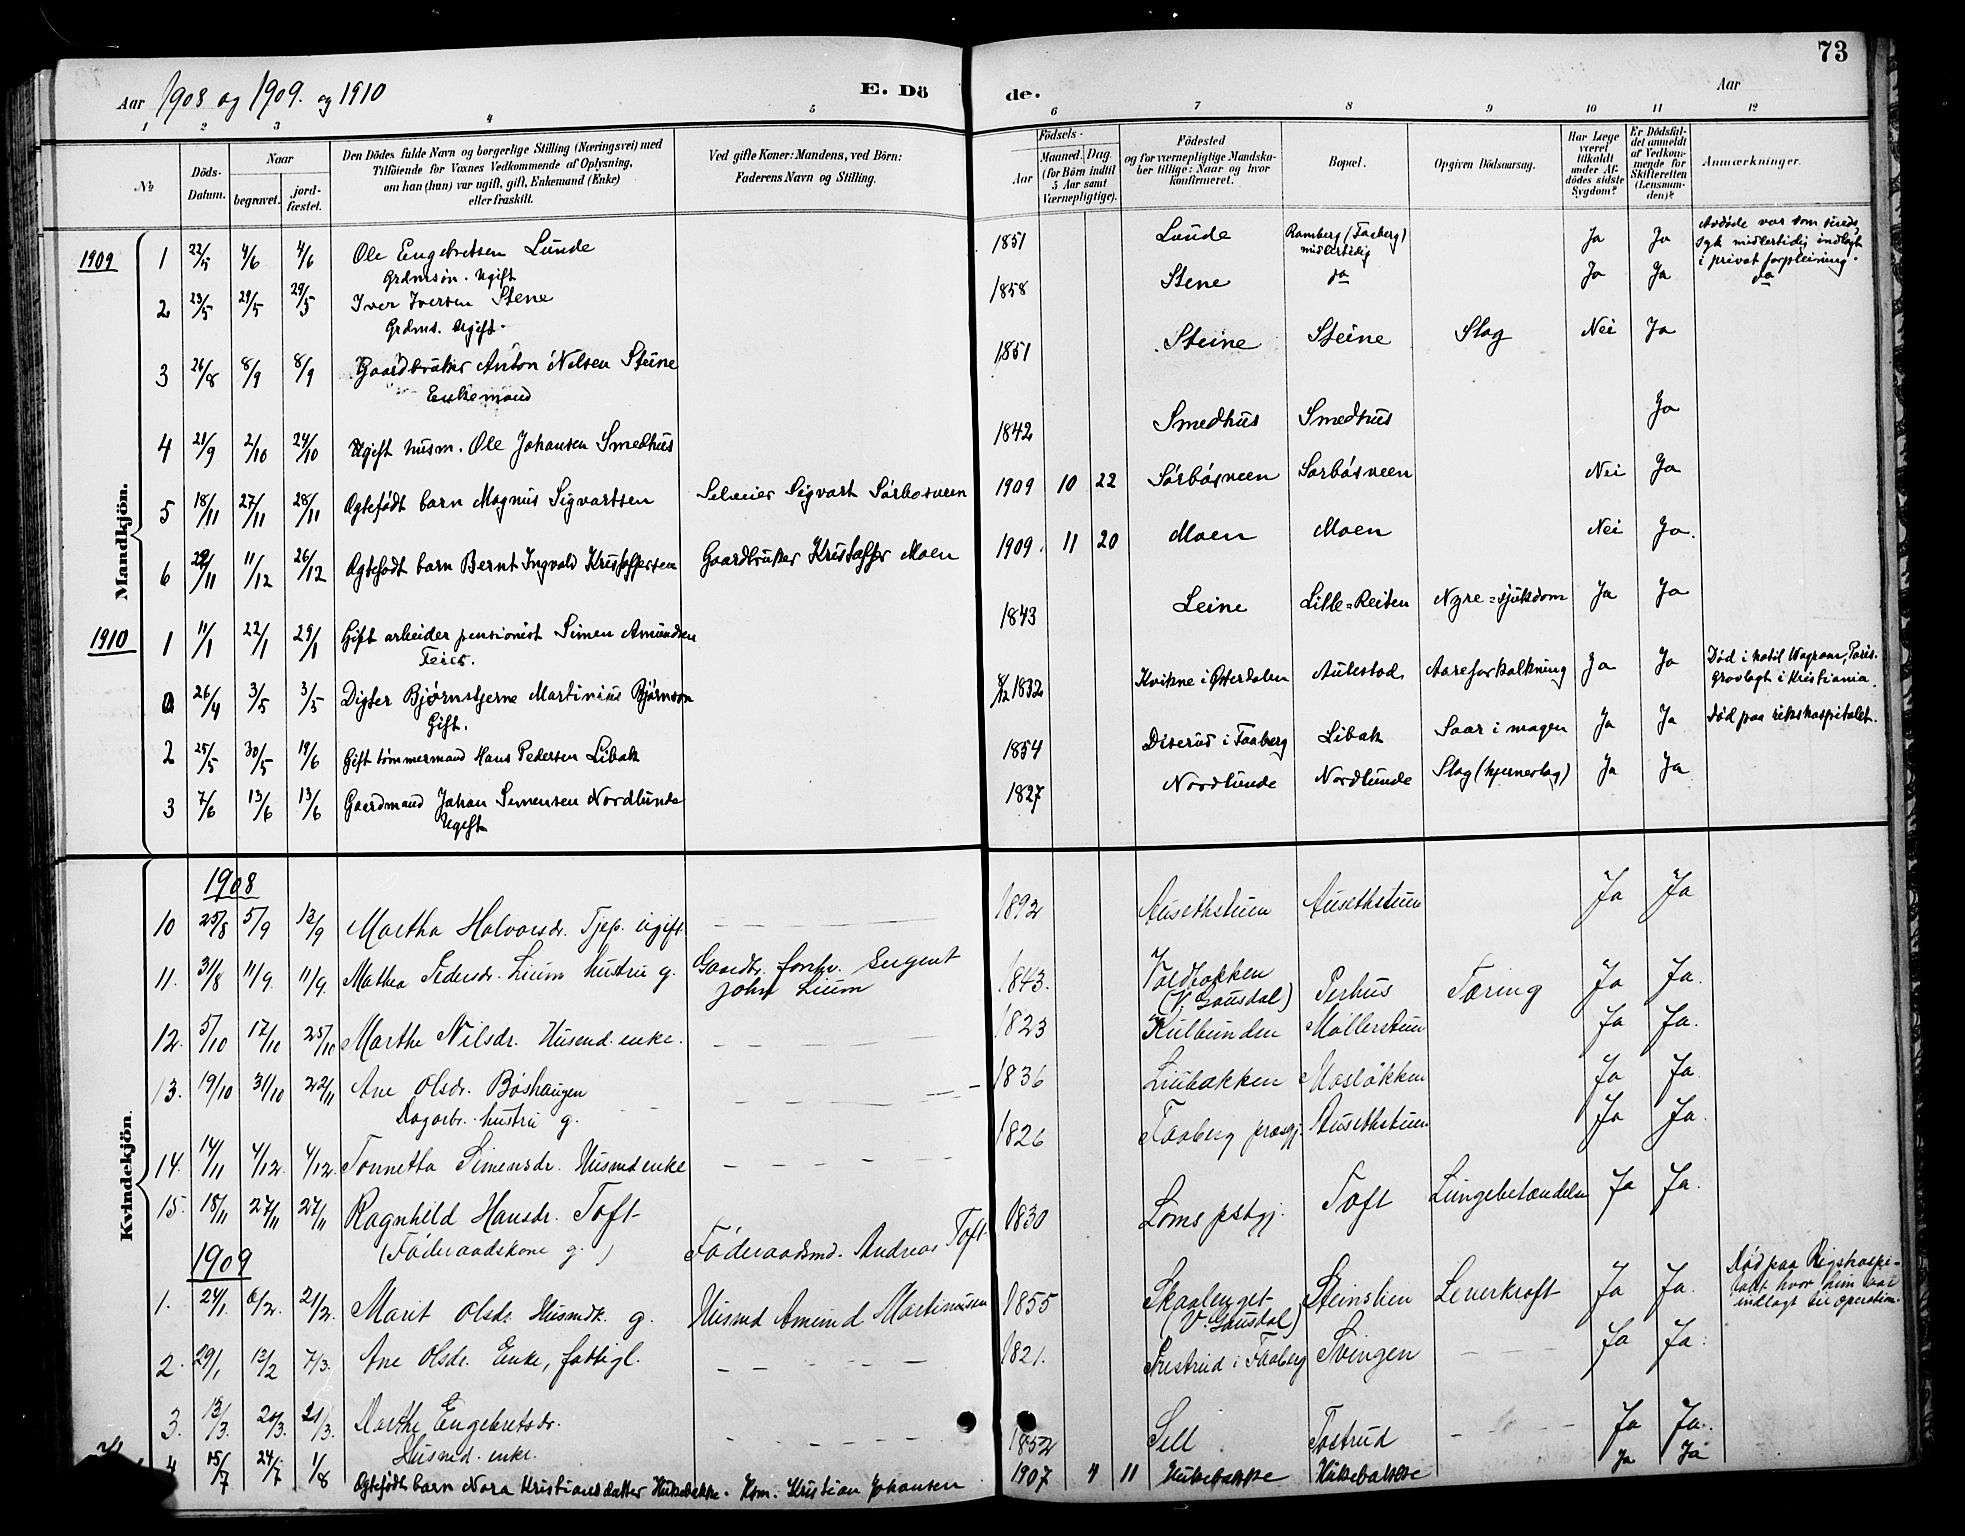 73
Aar 1908 og 1909. og 1910
E. Dö
de.
Aar
1 2 3 4 5 6 7 8 9 10 11 12
No
Döds-Datum.
Naar
begravet.
jord-fæstet.
Den Dödes fulde Navn og borgerlige Stilling (Næringsvei) med
Tilföiende for Voxnes Vedkommende af Oplysning,
om han (hun) var ugift, gift, Enkemand (Enke)
eller fraskilt.
Ved gifte Koner: Mandens, ved Börn:
Faderens Navn og Stilling.
Födsels-
Aar
Maaned. Dag.
(for Börn indtil
5 Aar samt
Værnepligtige).
Födested
og for værnepligtige Mandska-
ber tillige: Naar og hvor
konfirmeret.
Bopæl.
Opgiven Dödsaarsag.
Har Læge
været
tilkaldt
under Af-
dödes sidste
Sygdom?
Er Dödsfal-
det anmeldt
af Vedkom-
mende for
Skifteretten
(Lensman-
den)?
Anmærkninger.
Mandkjön.
1909
1 22/5 4/6 4/6 Ole Engebretsen Lunde 1851 Lunde Ramberg (Faaberg) Ja Ja
Grdmsøn. Ugift midlertidig
Avdøde var som sinds
syk midlertidig indlagt
i privat forpleining.
2 23/5 29/5 29/5 Iver Iversen Stene 1858 Stene do Ja Ja do
Grdms. Ugift.
3 26/8 8/9 8/9 Gaardbruker Anton Nilsen Steine 1851 Steine Steine Slag Nei Ja
Enkemand
4 21/9 2/10 24/10 Ugift husm. Ole Johansen Smedhus 1842 Smedhus Smedhus Ja
5 18/11 27/11 28/11 Ægtefødt barn Magnus Sigvartsen Selveier Sigvart Sørbøsveen 1909 10 22 Sørbøsveen Sørbøsveen Nei Ja
6 29/11 11/12 26/12 Ægtefødt barn Bernt Ingvald Kristoffersen Gaardbruker Kristoffer Moen 1909. 11 20 Moen Moen Nei Ja.
1910
1 11/1 22/1 29/1 Gift arbeider pensionist Simen Amundsen 1843 Leine Lille=Reiten Nyre=sjukdom Ja Ja
Feier.
a 26/4 3/5 3/5 Digter Bjørnstjerne Martinius Bjørnson 8/12 1832 Kvikne i Østerdalen Aulestad Aareforkalkning Ja Ja
Gift.
Død i hotel Wagram, Paris.
Gravlagt i Kristiania.
2 25/5 30/5 19/6 Gift tømmermand Hans Pedersen Libak 1854 Diserud i Faaberg Libak Saar i magen Ja Ja Død paa rikshospitalet.
3 7/6 13/6 13/6 Gaardmand Johan Simensen Nordlunde 1827 Nordlunde Nordlunde Slag (hjerneslag) Ja Ja
Ugift
Kvindekjön.
1908
10 25/8 5/9 13/9 Martha Halvorsdr. Tjep. ugift 1892 Ausethstuen Ausethstuen Ja Ja
11. 31/8 11/9. 11/9. Mathea Pedersdr. Lium hustru g. Gaardbr. forhv. Sergent 1843. Voldbakken Perhus Tæring Ja Ja.
John Lium (V. Gausdal)
12. 5/10 17/10 25/10 Marthe Nilsdr. Husmd. enke. 1823 Møllerstuen Ja Ja.
13. 19/10 31/10 22/11 Ane Olsdr. Bøshaugen 1836 Liubakken Ja Ja.
Dagarb. hustru g.
14. 14/11 4/12. 4/12. Tonnetta Simensdr. Husmd enke 1826 Faaberg præsgj. Ausethstuen Ja Ja.
15. 18/11 27/11 27/11 Ragnhild Hansdr. Toft 1830 Loms pstgj. Toft Lungebetændelse Ja Ja.
(Føderaadskone g.) Føderaadsmd. Andreas Toft
1909
1. 24/1. 6/2. 21/2. Marit Olsdr Husmdk. g. Husmd Amund Martinussen 1855 Skaalenget Steinslien Leverkræft Ja Ja.
(V. Gausdal)
Død paa Rigshospi-
talet hvor hun var
indlagt til operation.
2. 29/1 13/2 7/3. Ane Olsdr. Enke, fattigl. 1821. i Faaberg Svingen Ja Ja.
3. 13/3. 20/3. 21/3. Marthe Engebretsdr. 1852 Sell Tostrud Ja Ja.
Husmd. enke.
4 15/7 24/7 1/8 Ægtefødt barn Nora Kristiansdatter Hukebakke. Hsm. Kristian Johansen 1907 4 11 Hukebakke Hukebakke Ja Ja